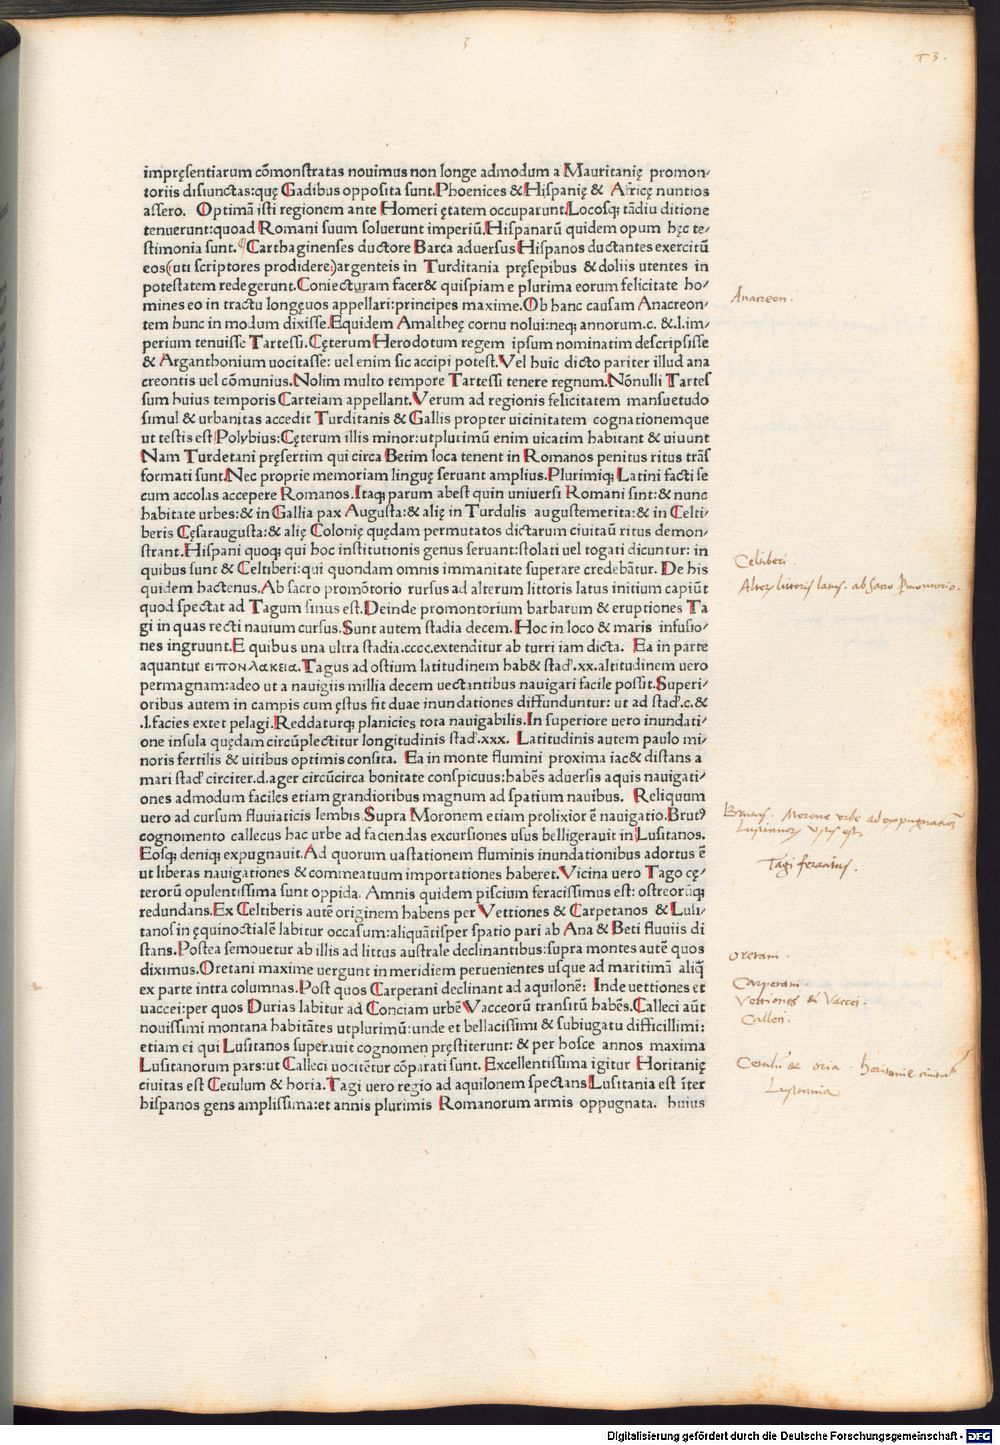 3
43.
impręsentiarum cōmonstratas nouimus non longe admodum a Mauritanię promon-
toriis disiunctas:quę Gadibus opposita sunt.Phoenices & Hispanię & Africę nuntios
assero. Optimā isti regionem ante Homeri ętatem occuparunt.Locosq; tādiu ditione
tenuerunt:quoad Romani suum soluerunt imperiū.Hispanarū quidem opum hęc te-
stimonia sunt.Carthaginenses ductore Barca aduersus Hispanos ductantes exercitū
eos(uti scriptores prodidere)argenteis in Turditania pręsepibus & doliis utentes in
potestatem redegerunt.Coniecturam facer& quispiam e plurima eorum felicitate ho-
mines eo in tractu longęuos appellari:principes maxime.Ob hanc causam Anacreon-
Anacreon.
tem hunc in modum dixisse.Equidem Amalthęę cornu nolui:neq; annorum.c. &.l.im-
perium tenuisse Tartessi.Cęterum Herodotum regem ipsum nominatim descripsisse
& Arganthonium uocitasse: uel enim sic accipi potest.Vel huic dicto pariter illud ana
creontis uel cōmunius.Nolim multo tempore Tartessi tenere regnum.Nōnulli Tartes
sum huius temporis Carteiam appellant.Verum ad regionis felicitatem mansuetudo
simul & urbanitas accedit Turditanis & Gallis propter uicinitatem cognationemque
ut testis est Polybius:Cęterum illis minor:utplurimū enim uicatim habitant & uiuunt
Nam Turdetani pręsertim qui circa Betim loca tenent in Romanos penitus ritus trās
formati sunt.Nec proprie memoriam linguę seruant amplius.Plurimiq; Latini facti se
cum accolas accepere Romanos.Itaq; parum abest quin uniuersi Romani sint:& nunc
habitate urbes:& in Gallia pax Augusta:& alię in Turdulis augustemerita:& in Celti-
beris Cęsaraugusta:& alię Colonię quędam permutatos dictarum ciuitaū ritus demon-
strant.Hispani quoq; qui hoc institutionis genus seruant:stolati uel togati dicuntur: in
quibus sunt & Celtiberi:qui quondam omnis immanitate superare credebātur. De his
Celtiberi.
quidem hactenus.Ab sacro promōtorio rursus ad alterum littoris latus initium capiūt
Alterū littoris latus. ab sacro promontorio.
quod spectat ad Tagum sinus est.Deinde promontorium barbarum & eruptiones Ta
gi in quas recti nauium cursus.Sunt autem stadia decem.Hoc in loco & maris infusio-
nes ingruunt.E quibus una ultra stadia.cccc.extenditur ab turri iam dicta. Ea in parte
aquantur ειπονλακεια.Tagus ad ostium latitudinem hab& stad'.xx.altitudinem uero
permagnam:adeo ut a nauigiis millia decem uectantibus nauigari facile possit.Superi-
oribus autem in campis cum ęstus fit duae inundationes diffunduntur: ut ad stad'.c.&
.l.facies extet pelagi.Reddaturq; planicies tota nauigabilis.In superiore uero inundati-
one insula quędam circūplectitur longitudinis stad'.xxx. Latitudinis autem paulo mi-
noris fertilis & uitibus optimis consita. Ea in monte flumini proxima iac& distans a
mari stad' circiter.d.ager circūcirca bonitate conspicuus:habēs aduersis aquis nauigati-
ones admodum faciles etiam grandioribus magnum ad spatium nauibus. Reliquum
uero ad cursum fluuiaticis lembis.Supra Moronem etiam prolixior ē nauigatio.Brutꝰ
Brutus. Morone urbe ad expugnationē
Lusitanorū usus est
cognomento callecus hac urbe ad faciendas excursiones usus belligerauit in Lusitanos.
Eosq; deniq; expugnauit.Ad quorum uastationem fluminis inundationibus adortus ē
Tagi feracitas.
ut liberas nauigationes & commeatuum importationes haberet.Vicina uero Tago cę-
terorū opulentissima sunt oppida. Amnis quidem piscium feracissimus est: ostreorūq;
redundans.Ex Celtiberis autē originem habens per Vettiones & Carpetanos & Lusi-
tanos in ęquinoctialē labitur occasum:aliquātisper spatio pari ab Ana & Beti fluuiis di
stans.Postea semouetur ab illis ad littus australe declinantibus:supra montes autē quos
Oretani.
diximus.Oretani maxime uergunt in meridiem peruenientes usque ad maritimā aliq̄
ex parte intra columnas.Post quos Carpetani declinant ad aquilonē: Inde uettiones et
Carpetani
Vettiones & Vaccei.
uaccei:per quos Durias labitur ad Conciam urbē Vacceorū transitū habēs.Calleci aūt
Calleci.
nouissimi montana habitātes utplurimū:unde et bellacissimi & subiugatu difficillimi:
etiam ei qui Lusitanos superauit cognomen pręstiterunt: & per hosce annos maxima
Lusitanorum pars:ut Calleci uocitētur cōparati sunt. Excellentissima igitur Horitanię
Cetulū & oria. horitanie ciuitas
ciuitas est Cetulum & horia.Tagi uero regio ad aquilonem spectans Lusitania est īter
Lusitania
hispanos gens amplissima:et annis plurimis Romanorum armis oppugnata. huius
Digitalisierung gefördert durch die Deutsche Forschungsgemeinschaft - DFG